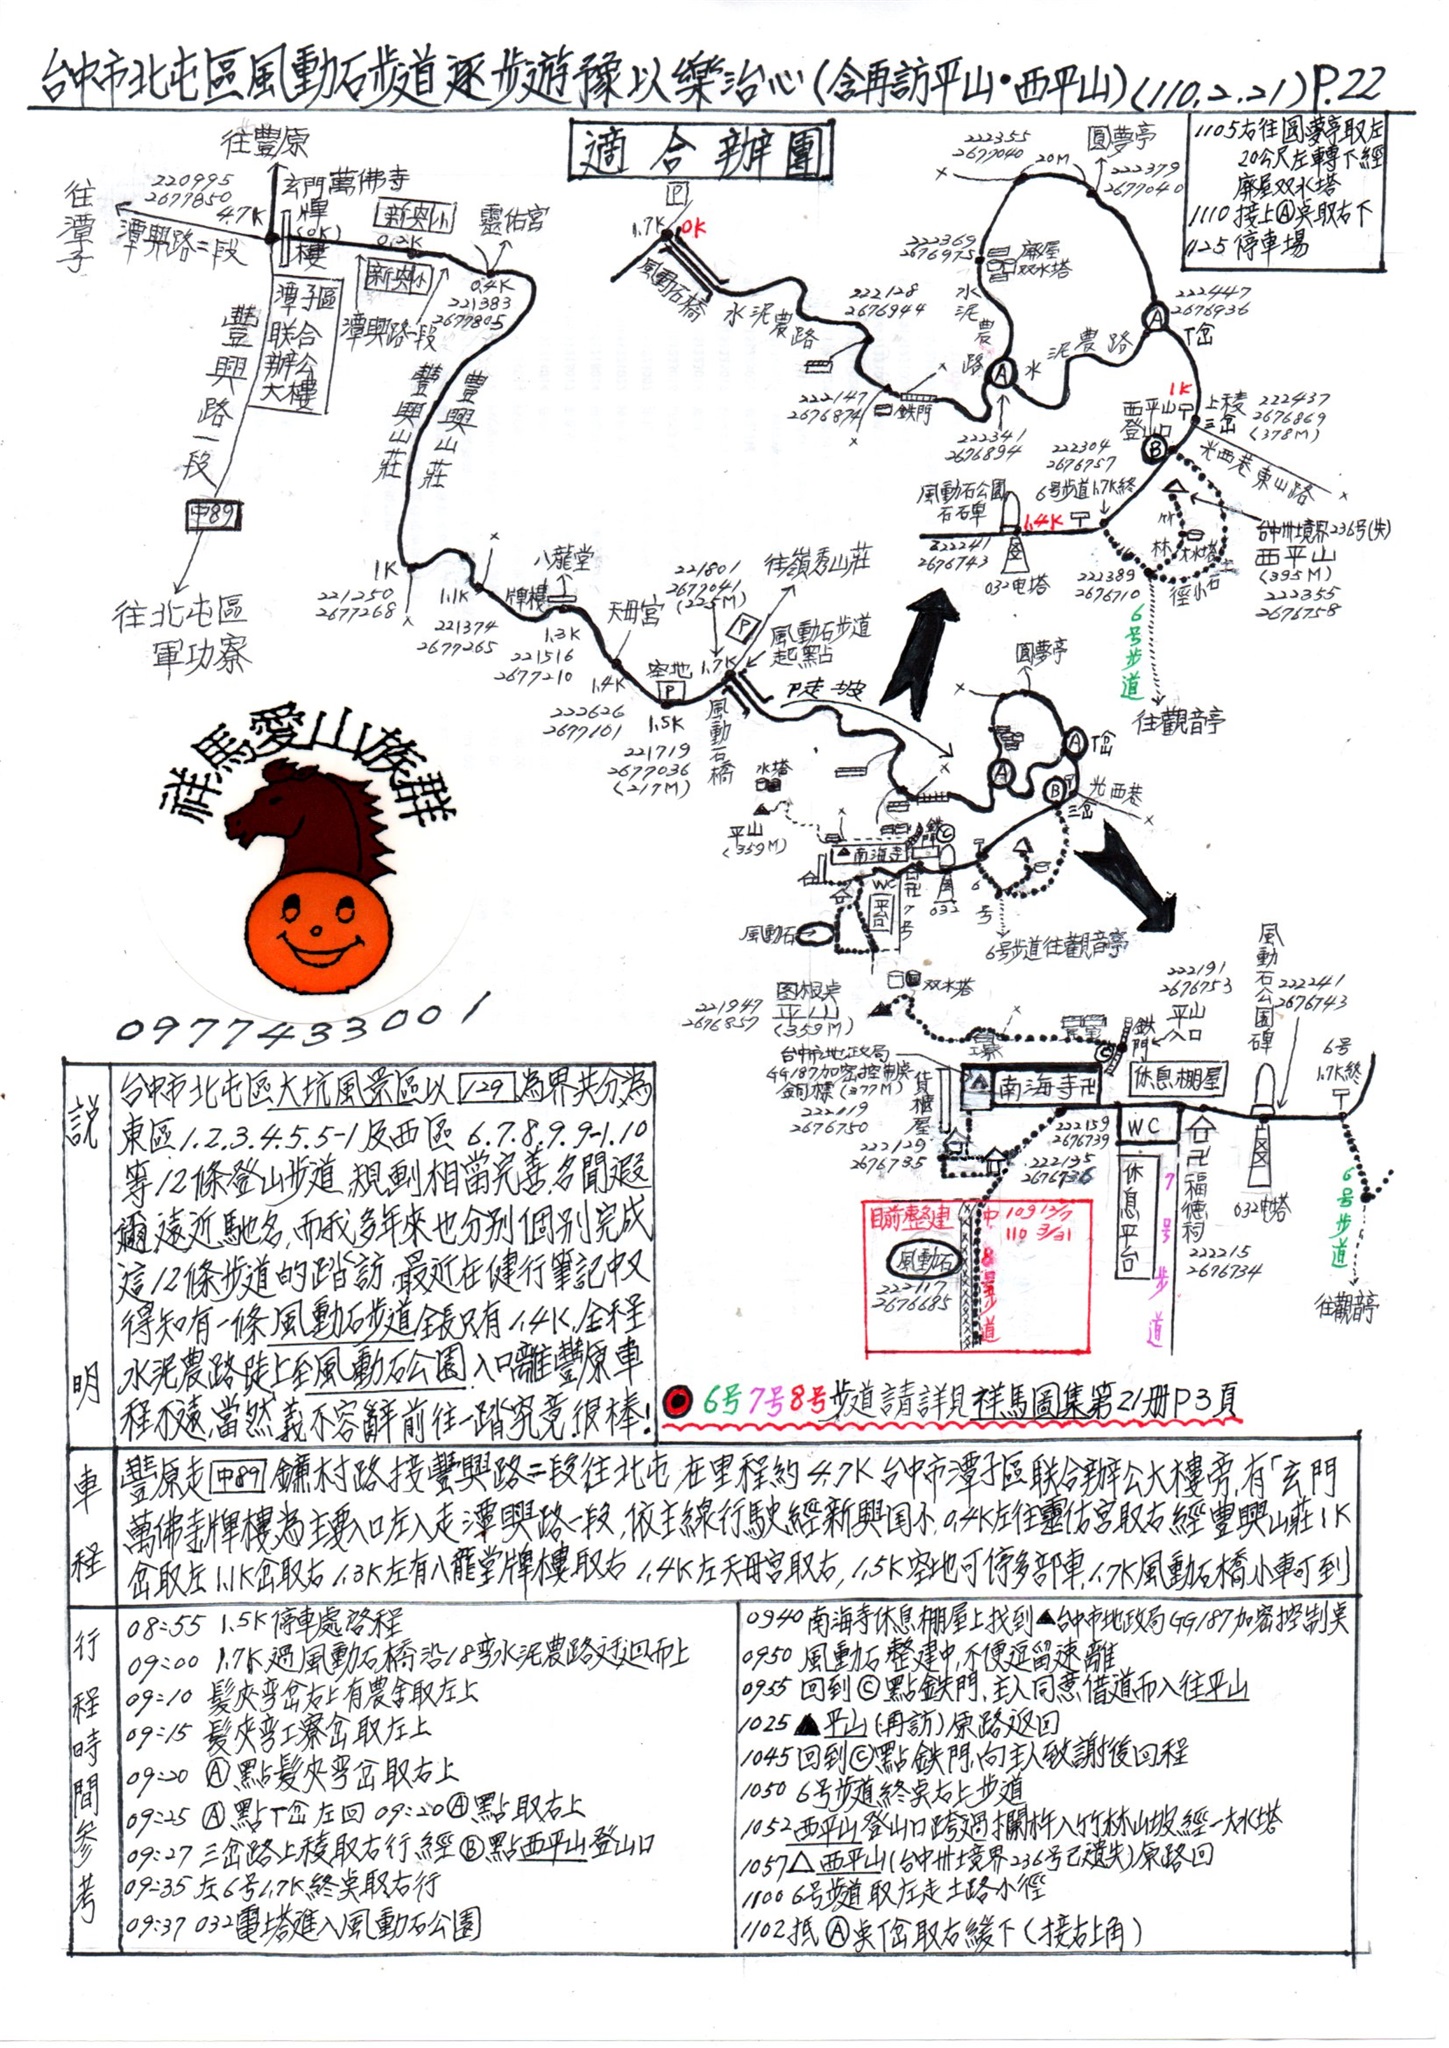 台中市北屯區風動石步道逐步遊豫以樂治心(含再訪平山·西平山)(110.2.21)P.22
適合辦團
1105右往圓夢亭取左
20公尺左轉下經
廢屋双水塔
1110接上Ⓐ點取右下
1125停車場
往豐原
往潭子
220995
2677850
4.7K
潭興路二段
玄門萬佛寺
牌樓
(0K)
新興國小
0.2K
靈佑宮
0.4K
221383
2677805
潭興路一段
潭子區
联合
辦公
大樓
豐興路一段
中89
往北屯區
軍功寮
豐興山莊
豐興山莊
1K
221250
2677268
1.1K
221374
2677265
八龍堂
牌樓
1.3K
221516
2677210
天母宮
1.4K
222626
2677101
空地
P
1.5K
221719
2677036
(217M)
221801
2677041
(225M)
1.7K
往嶺秀山莊
P
風動石步道
起點
風動石橋
P走一坡
P
1.7K
0K
風動石橋
水泥農路
222128
2676944
222147
2676874
鉄門
222341
2676894
Ⓐ
水泥農路
水泥農路
222369
2676975
廢屋
双水塔
222355
2677040
20M
圓夢亭
222379
2677040
222447
2676936
Ⓐ
T岔
1K
西平山
登山口
Ⓑ
上稜
三岔
222437
2676869
(378M)
光西巷
東山路
222304
2676757
6号步道1.7K終
風動石公園
石碑
1.4K
222241
2676743
032电塔
竹
林
水塔
土石小徑
台中州境界236号(失)
西平山
(395M)
222355
2676758
222389
2676710
6号步道
往觀音亭
圓夢亭
Ⓐ
T岔
Ⓐ
Ⓑ
三岔
光西巷
水塔
平山
(359M)
鉄門
Ⓒ
南海寺
WC
平台
7号
032
6号
風動石
6号步道往觀音亭
祥馬愛山族群
0977433001
双水塔
221947
2676857
图根点
平山
(359M)
台中市地政局
GG187加密控制点
銅標(377M)
222119
2676750
貨櫃屋
工寮
222129
2676735
南海寺卍
Ⓒ
鉄門
222191
2676753
平山
入口
休息棚屋
222159
2676739
222135
2676736
WC
休息平台
7号步道
卍福德祠
222215
2676734
風動石公園碑
222241
2676743
032电塔
6号
1.7K終
6号步道
往觀音亭
目前整建中
109 12/7
110 3/31
風動石
222117
2676685
8号步道
6号7号8号步道請詳見祥馬圖集第21册P3頁
說明
台中市北屯區大坑風景區以129為界共分為
東區1.2.3.4.5.5-1及西區6.7.8.9.9-1.10
等12條登山步道,規劃相當完善,名聞遐
邇,遠近馳名,而我多年來也分別個別完成
這12條步道的踏訪,最近在健行筆記中又
得知有一條風動石步道全長只有1.4K,全程
水泥農路陡上至風動石公園入口離豐原車
程不遠,當然義不容辭前往一踏究竟,很棒!
車程
豐原走中89鐮村路接豐興路二段往北屯,在里程約4.7K台中市潭子區联合辦公大樓旁,有「玄門
萬佛寺牌樓為主要入口左入走潭興路一段,依主線行駛經新興国小,0.4K左往靈佑宮取右經豐興山莊1K
岔取左1.1K岔取右1.3K左有八龍堂牌樓取右1.4K左天母宮取右,1.5K空地可停多部車,1.7K風動石橋小車可到
行程時間參考
08:55 1.5K停車處啓程
09:00 1.7K過風動石橋沿18弯水泥農路迂迴而上
09:10 髮夾弯岔右上有農舍取左上
09:15 髮夾弯工寮岔取左上
09:20 Ⓐ點髮夾弯岔取右上
09:25 Ⓐ點T岔左回09:20Ⓐ點取右上
09:27 三岔路上稜取右行經Ⓑ點西平山登山口
09:35 左6号1.7K終点取右行
09:37 032電塔進入風動石公園
0940 南海寺休息棚屋上找到▲台中市地政局GG187加密控制点
0950 風動石整建中,不便逗留速離
0955 回到Ⓒ點鉄門,主人同意借道而入往平山
1025 ▲平山(再訪)原路返回
1045 回到Ⓒ點鉄門,向主人致謝後回程
1050 6号步道終点右上步道
1052 西平山登山口跨過欄杆入竹林山坡,經一大水塔
1057 △西平山(台中州境界236号已遺失)原路回
1100 6号步道取左走土路小徑
1102 抵Ⓐ点T岔取右緩下(接右上角)